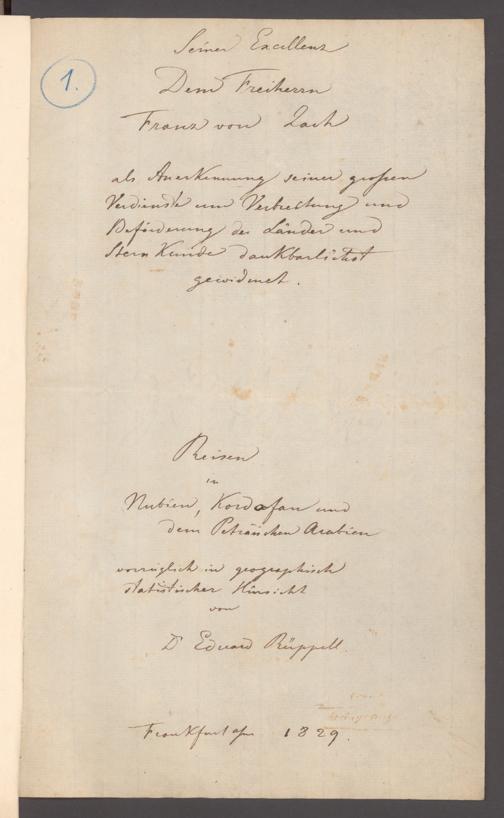 1.
Seiner Excellenz
Dem Freiherrn
Franz von Zach
als Anerkennung seiner großen
Verdienste um Verbreitung und
Beförderung der Länder und
Stern Kunde dankbarlichst
gewidmet.
Reisen
in
Nubien, Kordofan und
dem Peträischen Arabien
vorzüglich in geographisch
statistischer Hinsicht
von
Dr Eduard Rüppell.
Frankfurt a/m 1829.